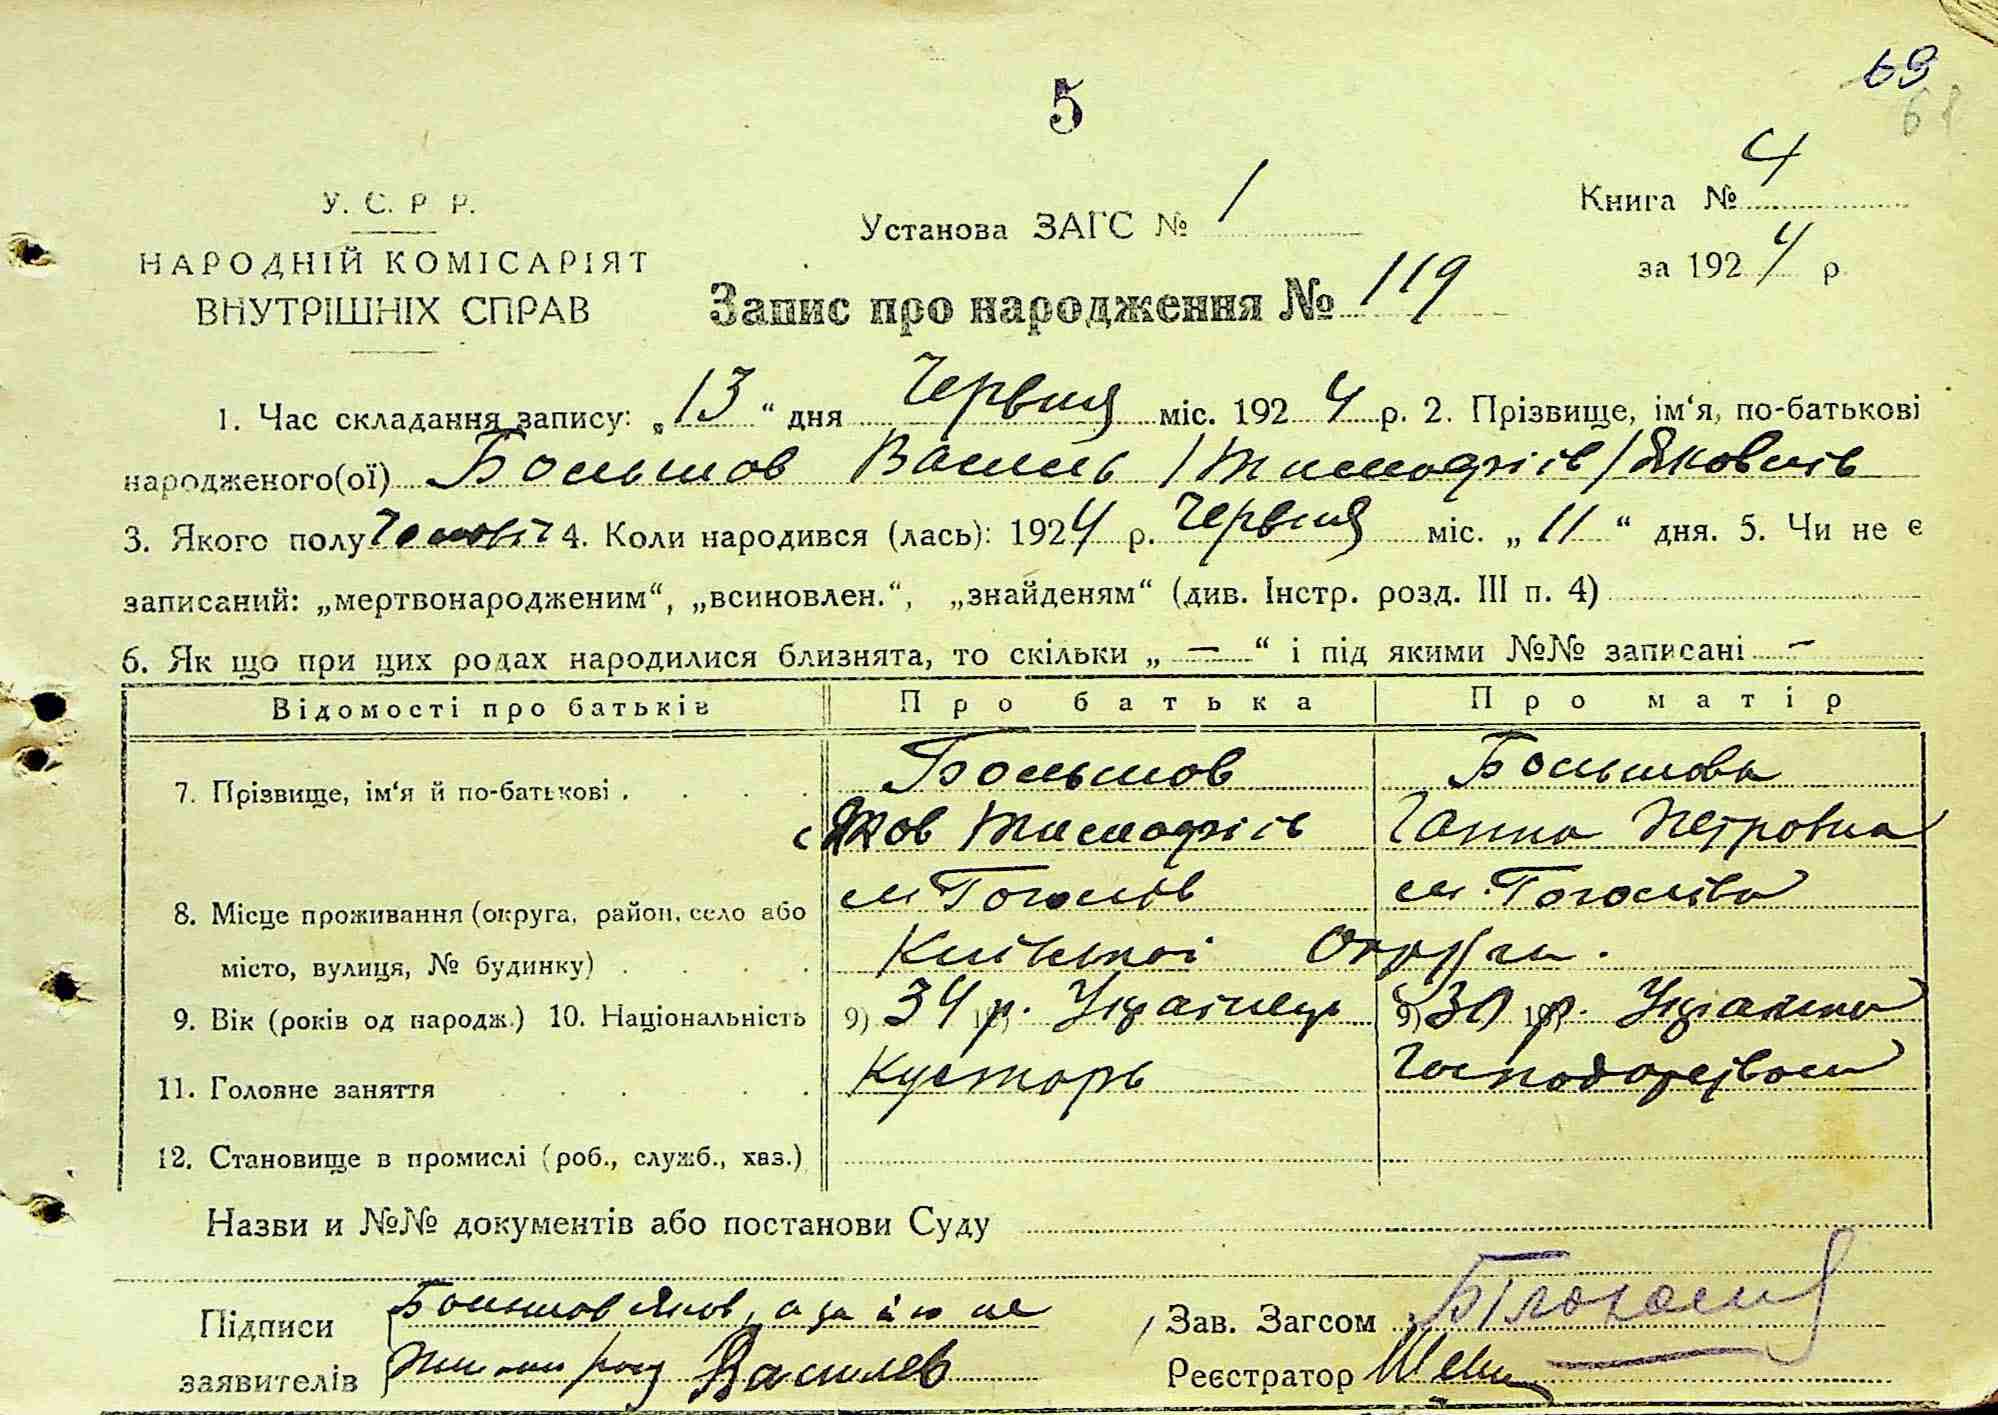 69
68
5
У. С. Р Р.
НАРОДНІЙ КОМІСАРІЯТ
ВНУТРІШНІХ СПРАВ
Установа ЗАГС № 1
Книга № 4
за 1924 р.
Запис про народження № 119
1. Час складання запису: „13“ дня Червня міс. 1924 р. 2. Прізвище, ім‘я, по-батькові
народженого(ої) Большов Василь /Тимофіїв/ Яковлів
3. Якого полу Чоловіч 4. Коли народився (лась): 1924 р. Червня міс. „11“ дня. 5. Чи не є
записаний: „мертвонародженим“, „всиновлен.“, „знайденям“ (див. Інстр. розд. III п. 4)
6. Як що при цих родах народилися близнята, то скільки „ — “ і під якими №№ записані —
Відомості про батьків Про батька Про матір
7. Прізвище, ім‘я й по-батькові . Большов Большова
Яков Тимофіїв Ганна Петровна
8. Місце проживання (округа, район, село або м Гоголів м. Гоголіва
місто, вулиця, № будинку) Київської Округи.
9. Вік (років од народж.) 10. Національність 9) 34 р. Українець 9) 30 р. Українка
11. Головне заняття Кустарь
12. Становище в промислі (роб., служб., хаз.)
Назви и №№ документів або постанови Суду
Підписи Большов Яков, а за його не
заявителів Василев
Зав. Загсом
Реєстратор